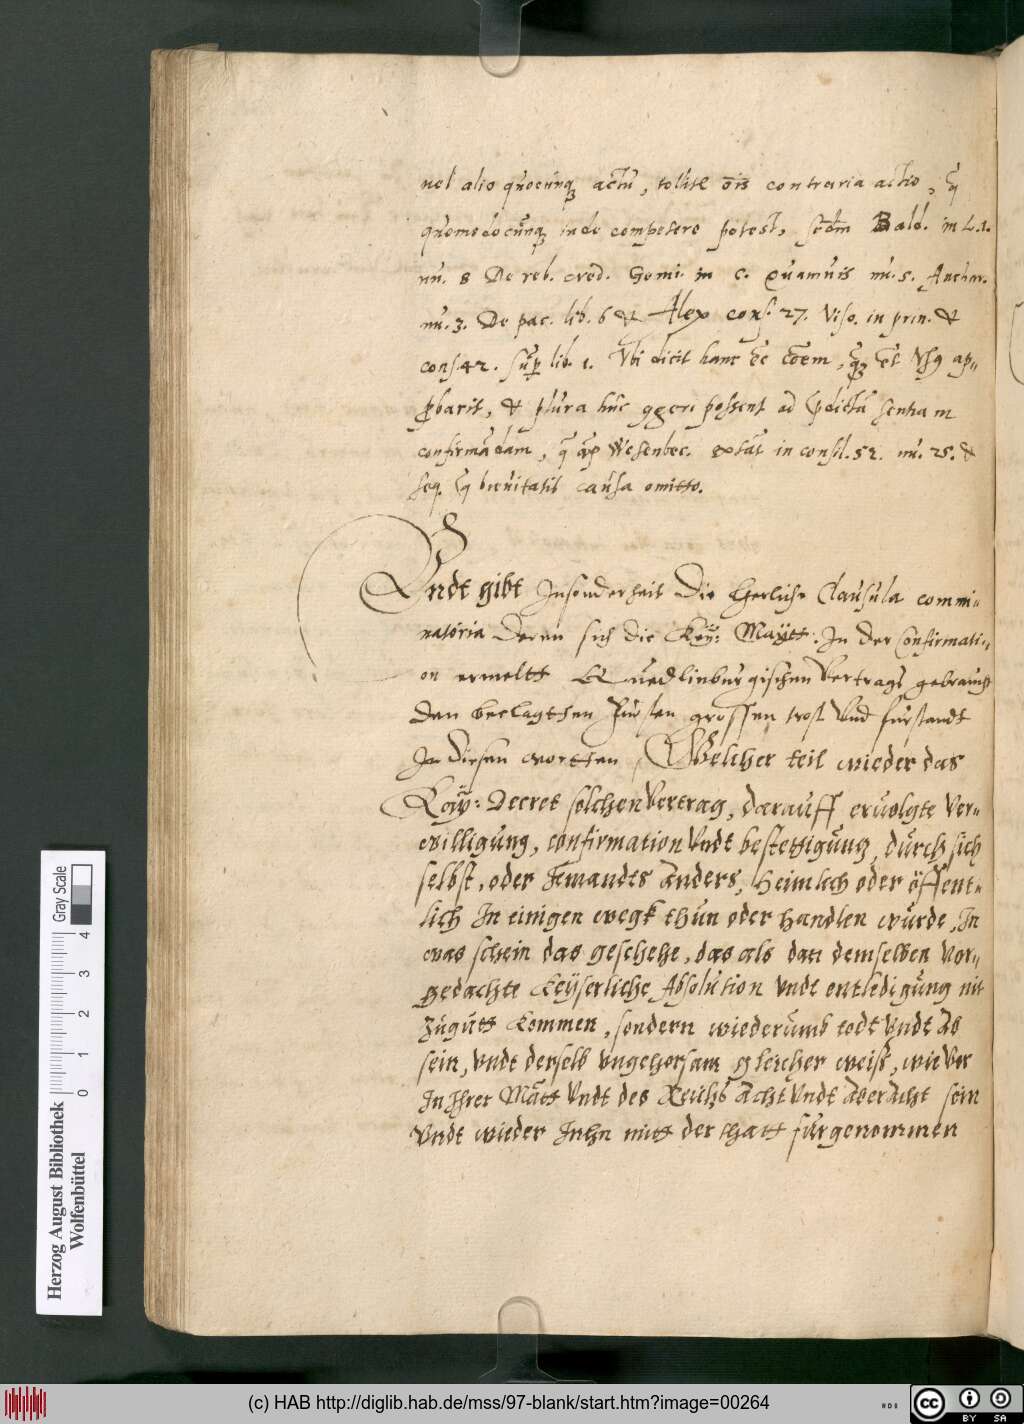 uel alio quocunq actu, tollite õis contraria actio, q̃
quomodocunq, inde competere potest, secdm Bald. in L. 1.
nu. 8 De reb. cred. Gemi. in c. quamuis nu. 5. Anchar.
nu. 3. De pac. lib. 6 & Alex cons. 27. viso. in prin. &
cons. 42. sup lib. 1. Vbi dicit hanc ẽe cõem, et vsq ap-
pbarit, & plura huc possent ad pdicta sentiam
confirmãdam, q̃ ap Wesenbec. extãt in consil. 52. nu. 25. &
seq. q̃ breuitatis causa omitto.
Vndt gibt Insonderheit Die Herliche Clausula commi-
natoria Deren sich die Key: Maytt: In der Confirmati-
on ermeltts Quedlinburgischen Vertrags gebraucht
den beclagtten Fursten grossen trost Vnd furstandt
In diesen wortten, Welcher teil wieder das
Key: Decret solchen Vertrag, darauff eruolgte Ver-
willigung, confirmation Vndt bestettigung, durch sich
selbst, oder Jemandts anders, Heimlich oder öffent-
lich In einigen wegk thun oder handlen wurde, In
was schein das geschehe, das als dan demselben Vor-
gedachte Keyserliche Absolution Vndt entledigung nit
Zugutt kommen, sondern wiederumb todt Vndt ab
sein, Vndt derselb Vngehorsam gleicher weiß, wie Vor
In Ihrer Matt Vndt des Reichs acht Vndt aberacht sein
Vndt wieder Inen mitt der thatt furgenommen
Herzog August Bibliothek
Wolfenbüttel
0 1 2 3 4
Gray Scale
(c) HAB http://diglib.hab.de/mss/97-blank/start.htm?image=00264
cc BY SA